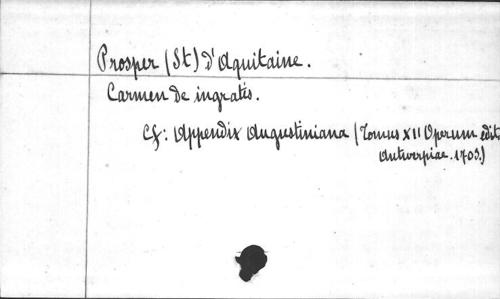 Prosper (St) d'Aquitaine.
Carmen de ingratis.
Cf: Appendix Augustiniana (Tomus XII Operum edit.
Antverpiae. 1703.)